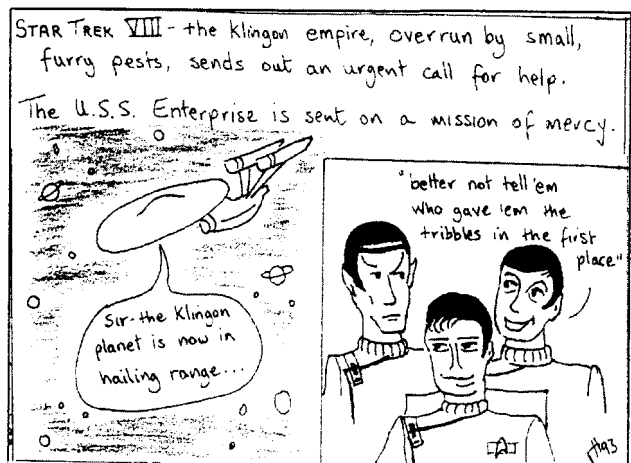 STAR TREK VIII - the Klingon empire, overrun by small,
furry pests, sends out an urgent call for help.
The U.S.S. Enterprise is sent on a mission of mercy.
Sir - the Klingon
planet is now in
hailing range...
"better not tell 'em
who gave 'em the
tribbles in the first
place"